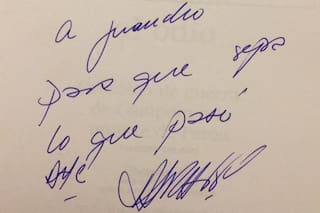 A Juancho
para que sepa
lo que pasó